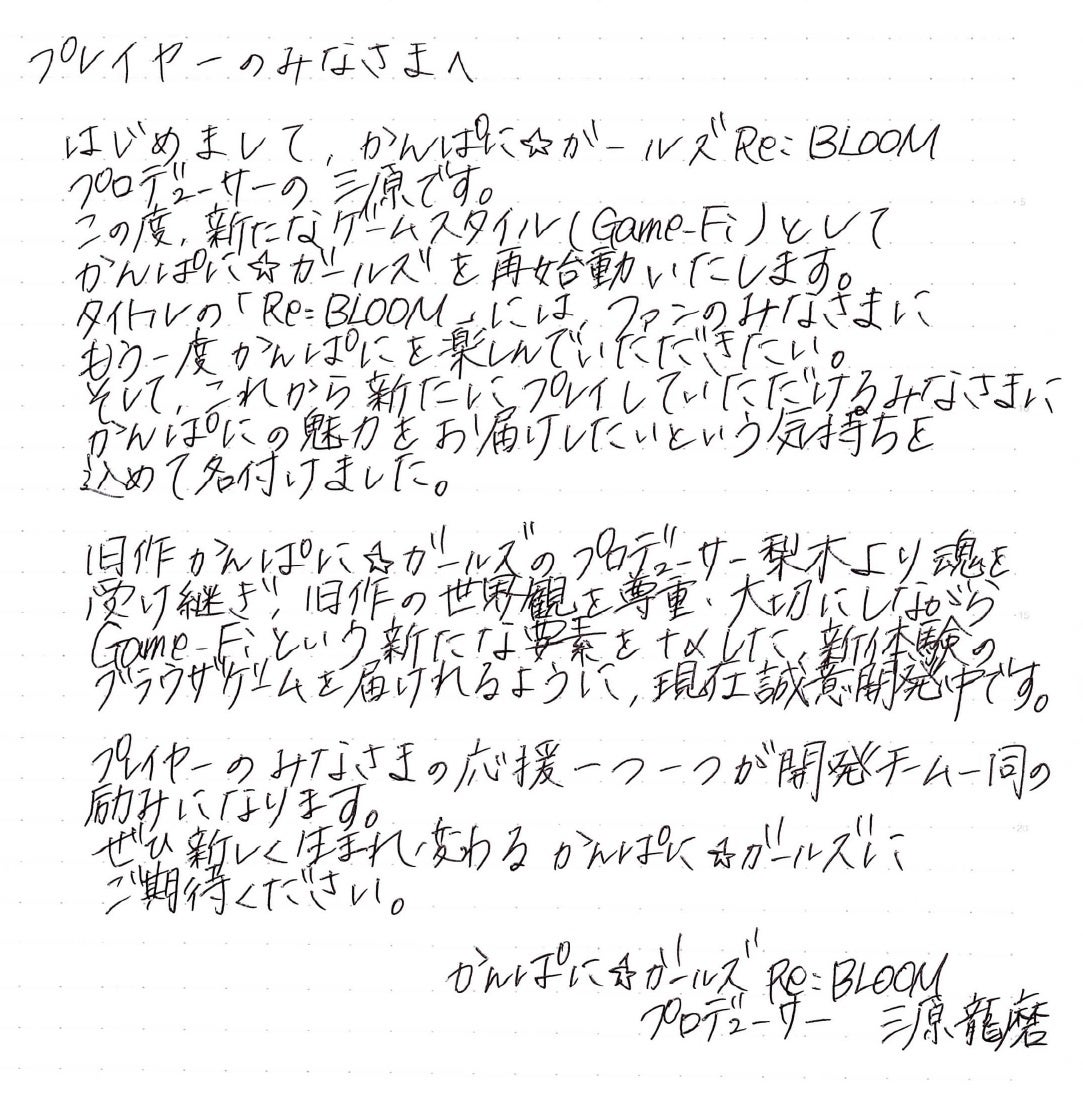 プレイヤーのみなさまへ
はじめまして、かんぱに☆ガールズRe:BLOOM
プロデューサーの三原です。
この度、新たなゲームスタイル(Game-Fi)として
かんぱに☆ガールズを再始動いたします。
タイトルの「Re:BLOOM」には、ファンのみなさまに
もう一度かんぱにを楽しんでいただきたい。
そして、これから新たにプレイしていただけるみなさまに
かんぱにの魅力をお届けしたいという気持ちを
込めて名付けました。
旧作かんぱに☆ガールズのプロデューサー梨木より魂を
受け継ぎ、旧作の世界観を尊重・大切にしながら
Game-Fiという新たな要素を+αした、新体験の
ブラウザゲームを届けれるように、現在誠意開発中です。
プレイヤーのみなさまの応援一つ一つが開発チーム一同の
励みになります。
ぜひ新しく生まれ変わるかんぱに☆ガールズに
ご期待ください。
かんぱに☆ガールズ Re:BLOOM
プロデューサー 三原龍磨
5
15
20